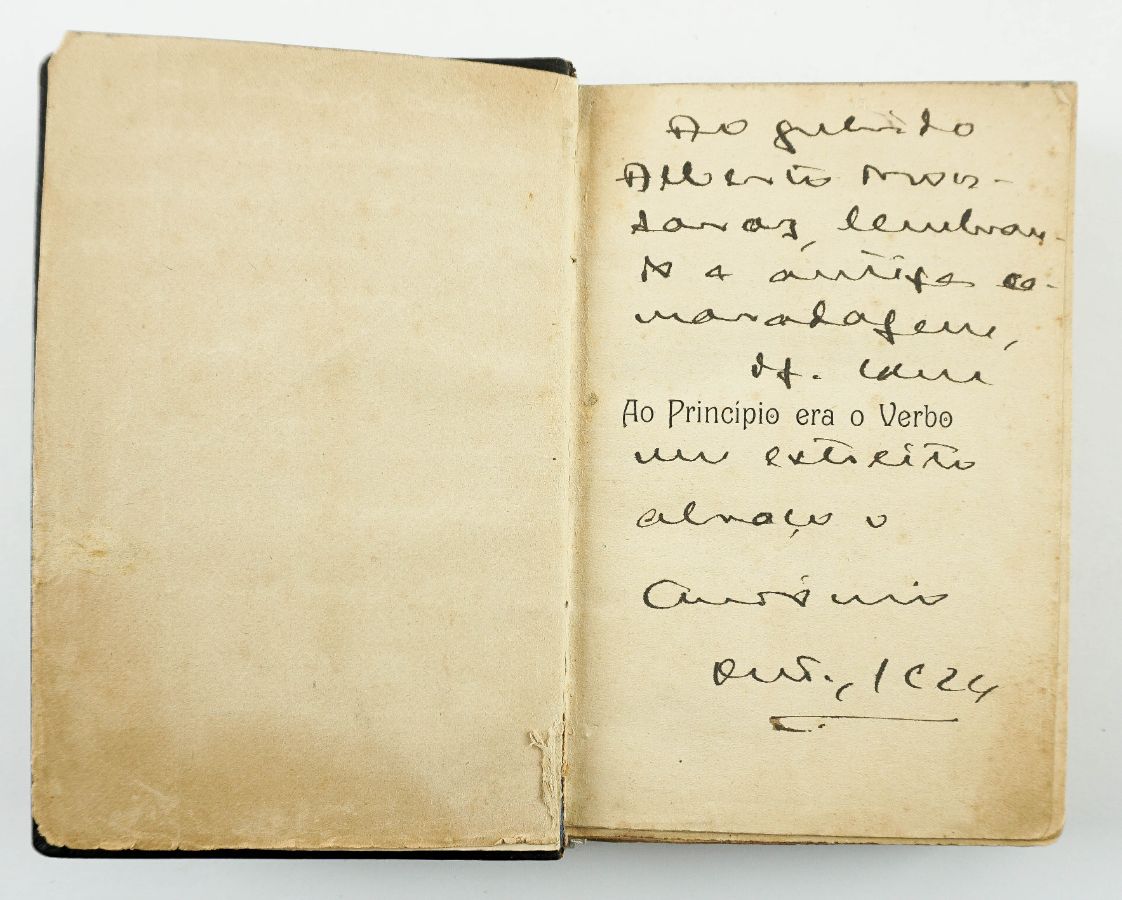 Ao querido
Alberto Mon-
saraz, lembran-
do a antiga ca-
maradagem,
com
Ao Princípio era o Verbo
um estreito
abraço o
António
Out., 1924